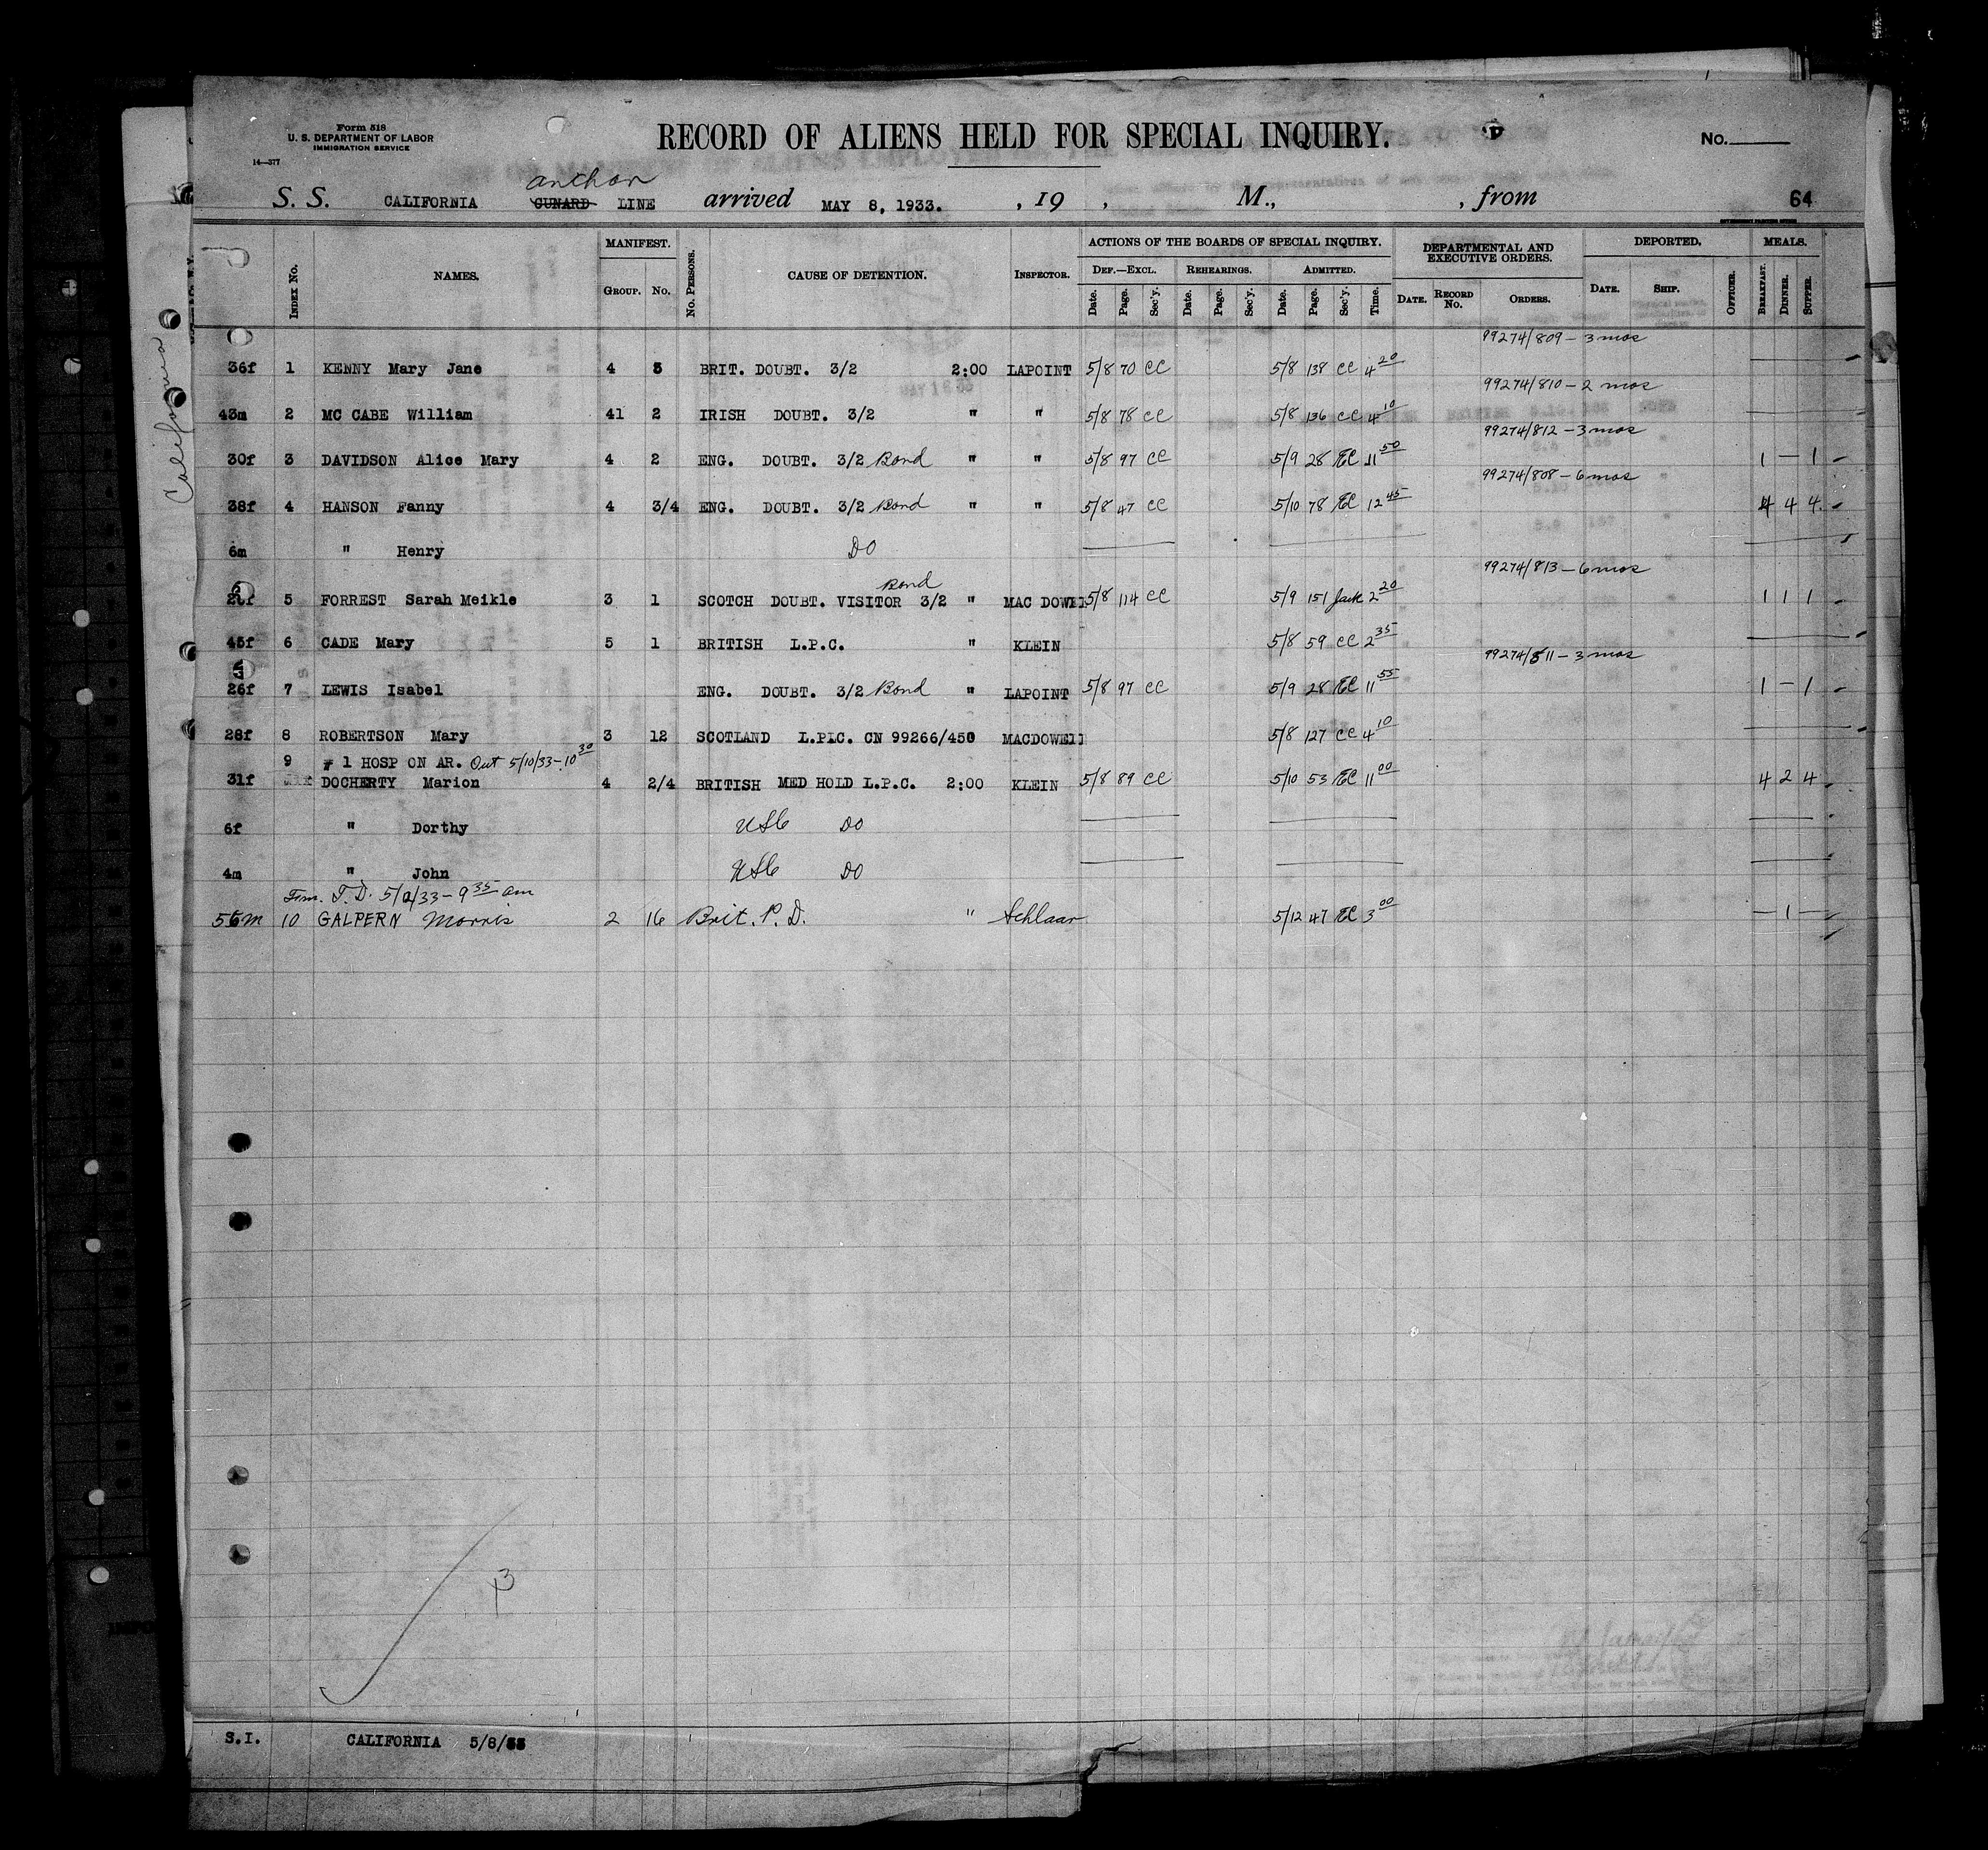 Form 518
U. S. DEPARTMENT OF LABOR
IMMIGRATION SERVICE
14—377
RECORD OF ALIENS HELD FOR SPECIAL INQUIRY.
No.
S. S. CALIFORNIA CUNARD anchor LINE arrived MAY 8, 1933. , 19 , M., , from 64
California
INDEX NO. NAMES. MANIFEST. GROUP. NO. NO. PERSONS. CAUSE OF DETENTION. INSPECTOR. ACTIONS OF THE BOARDS OF SPECIAL INQUIRY. DEF.—EXCL. Date. Page. Sec'y. REHEARINGS. Date. Page. Sec'y. ADMITTED. Date. Page. Sec'y. Time. DEPARTMENTAL AND EXECUTIVE ORDERS. DATE. RECORD NO. ORDERS. DEPORTED. DATE. SHIP. OFFICER. MEALS. BREAKFAST. DINNER. SUPPER.
99274/809 – 3 mos
36f 1 KENNY Mary Jane 4 5 BRIT. DOUBT. 3/2 2:00 LAPOINT 5/8 70 CC 5/8 138 CC 4 20
99274/810 – 2 mos
43m 2 MC CABE William 41 2 IRISH DOUBT. 3/2 " " 5/8 78 CC 5/8 136 CC 4 10
99274/812 – 3 mos
30f 3 DAVIDSON Alice Mary 4 2 ENG. DOUBT. 3/2 Bond " " 5/8 97 CC 5/9 28 EC 11 50 1 – 1
99274/808 – 6 mos
38f 4 HANSON Fanny 4 3/4 ENG. DOUBT. 3/2 Bond " " 5/8 47 CC 5/10 78 EC 12 45 4 4 4
6m " Henry DO
99274/813 – 6 mos
Bond
5 FORREST Sarah Meikle 3 1 SCOTCH DOUBT. VISITOR 3/2 " MAC DOWELL 5/8 114 CC 5/9 151 Jack 2 20 1 1 1
45f 6 CADE Mary 5 1 BRITISH L.P.C. " KLEIN 5/8 59 CC 2 35
99274/811 – 3 mos
26f 7 LEWIS Isabel ENG. DOUBT. 3/2 Bond " LAPOINT 5/8 97 CC 5/9 28 EC 11 55 1 – 1
28f 8 ROBERTSON Mary 3 12 SCOTLAND L.P.C. CN 99266/450 MACDOWell 5/8 127 CC 4 10
9 # 1 HOSP ON AR. Out 5/10/33 – 10 30
31f DOCHERTY Marion 4 2/4 BRITISH MED HOLD L.P.C. 2:00 KLEIN 5/8 89 CC 5/10 53 EC 11 00 4 2 4
6f " Dorthy USC DO
4m " John USC DO
Frm. T.D. 5/ /33 – 9 35 am
56m 10 GALPERN Morris 2 16 Brit. P. D. " Schlaar 5/12 47 EC 3 00 – 1 –
13
S.I. CALIFORNIA 5/8/33